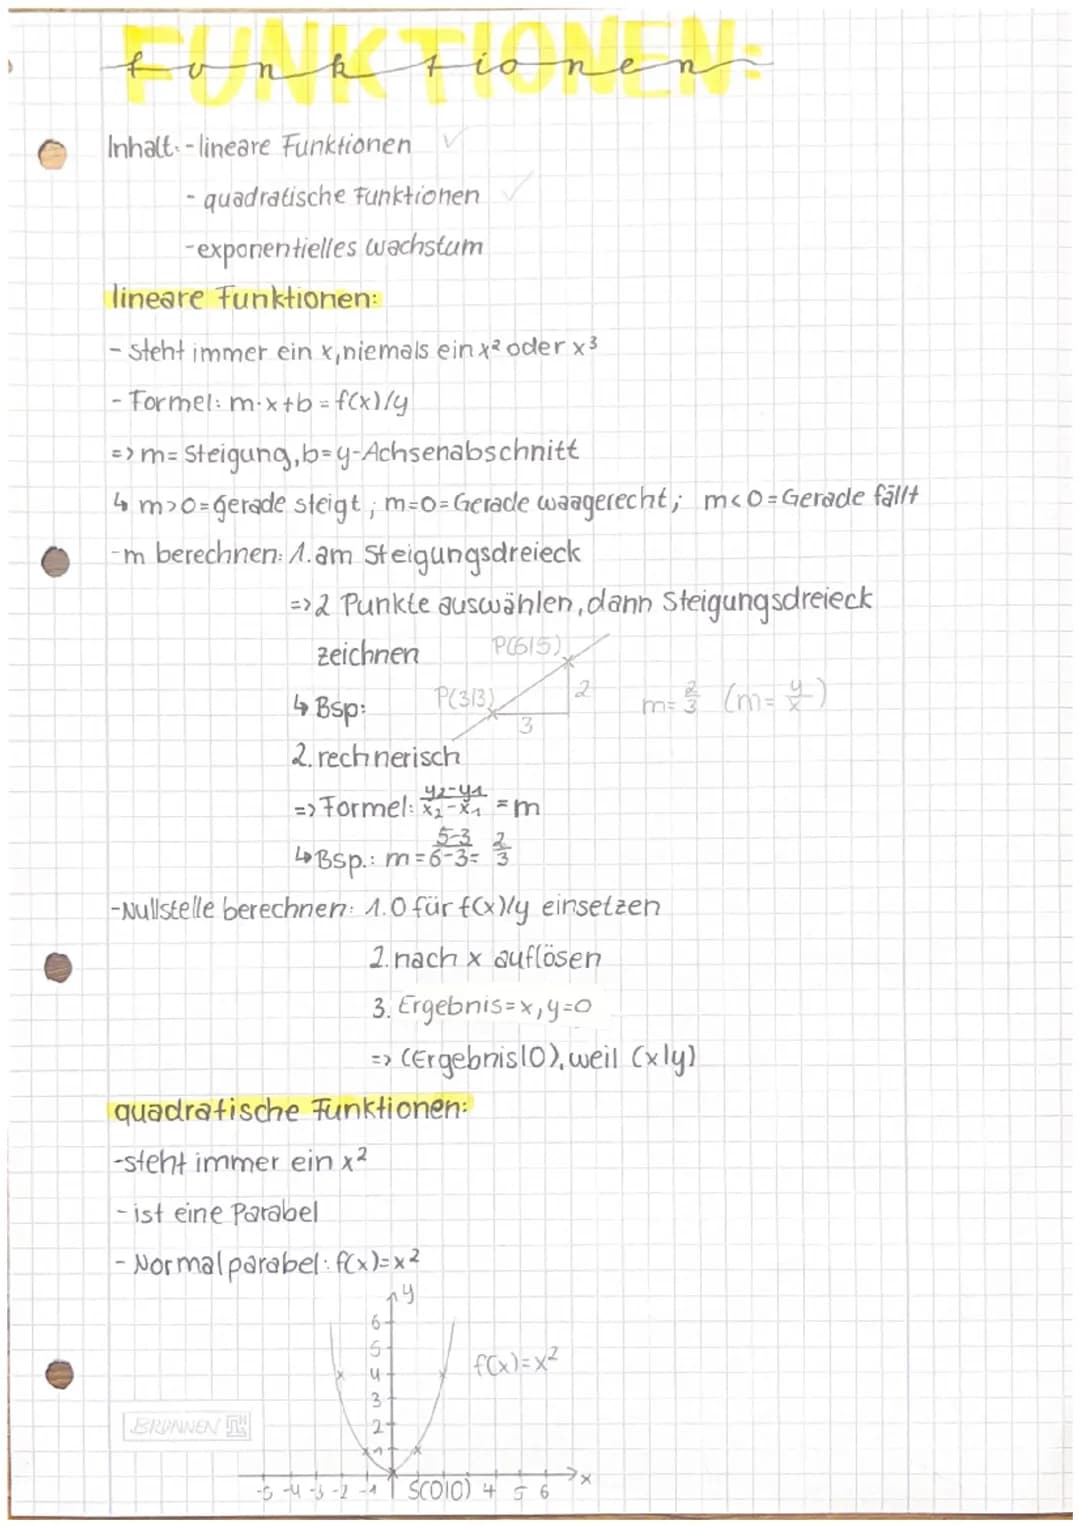 FUNKTIONEN:
funktionen
Inhalt: - lineare Funktionen ✓
- quadratische Funktionen ✓
- exponentielles Wachstum
lineare Funktionen:
- steht immer ein x, niemals ein x² oder x³
- Formel: m·x+b = f(x)/y
=> m = Steigung, b = y-Achsenabschnitt
↳ m>0 = Gerade steigt ; m=0 = Gerade waagerecht; m<0 = Gerade fällt
- m berechnen: 1. am Steigungsdreieck
=> 2 Punkte auswählen, dann Steigungsdreieck
zeichnen
P(6|5)
↳ Bsp:
P(3|3)
2
3
m = 2/3 (m = y/x)
2. rechnerisch
=> Formel: y₂-y₁/x₂-x₁ = m
↳ Bsp.: m = 5-3/6-3 = 2/3
- Nullstelle berechnen: 1. 0 für f(x)/y einsetzen
2. nach x auflösen
3. Ergebnis = x, y=0
=> (Ergebnis|0), weil (x|y)
quadratische Funktionen:
- steht immer ein x²
- ist eine Parabel
- Normalparabel: f(x)=x²
y
6
5
4
3
2
1
f(x)=x²
BRUNNEN
-5 -4 -3 -2 -1 S(0|0) 4 5 6 x